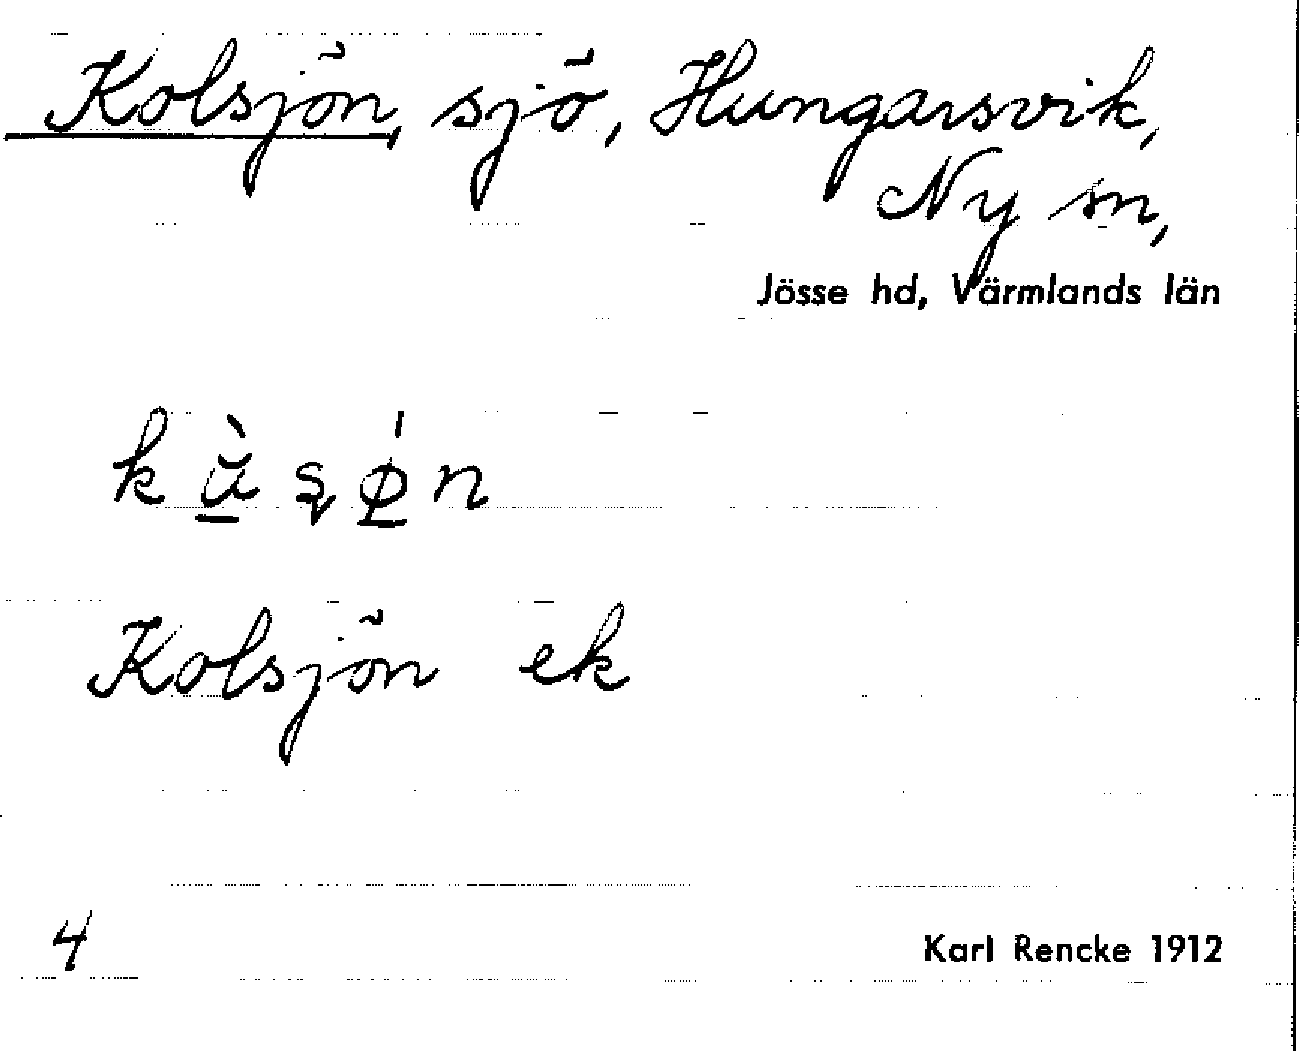 Kolsjön, sjö, Hungarsvik,
Ny sn,
Jösse hd, Värmlands län
Kolsjön ek
4
Karl Rencke 1912